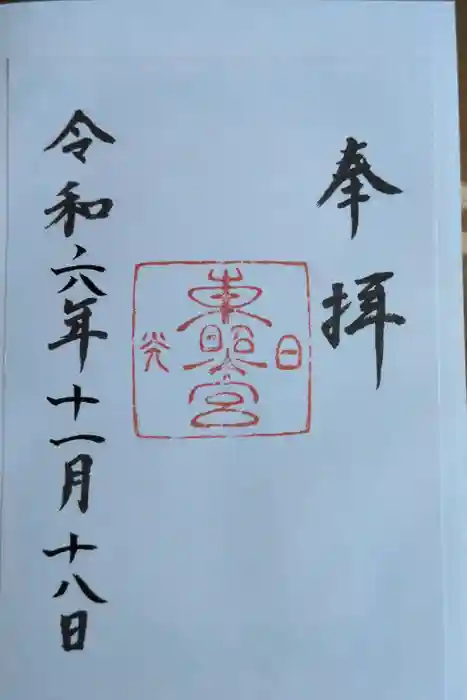 奉拝
日光
東照宮
令和六年十一月十八日